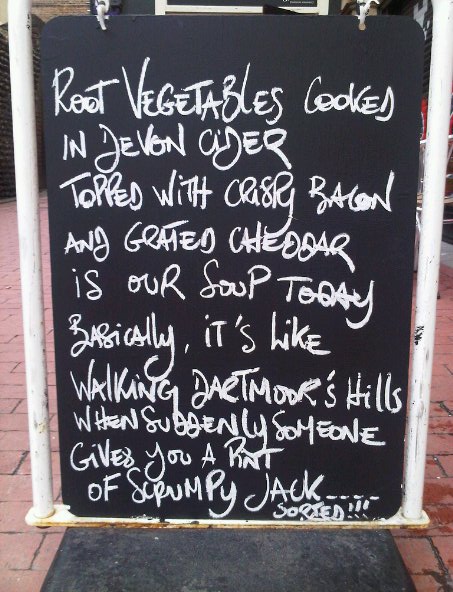 Root Vegetables Cooked
in Devon Cider
Topped with Crispy Bacon
and Grated Cheddar
is our Soup Today
Basically, it's like
walking Dartmoor's Hills
when suddenly someone
gives you a Pint
of Scrumpy Jack----
Sorted!!!